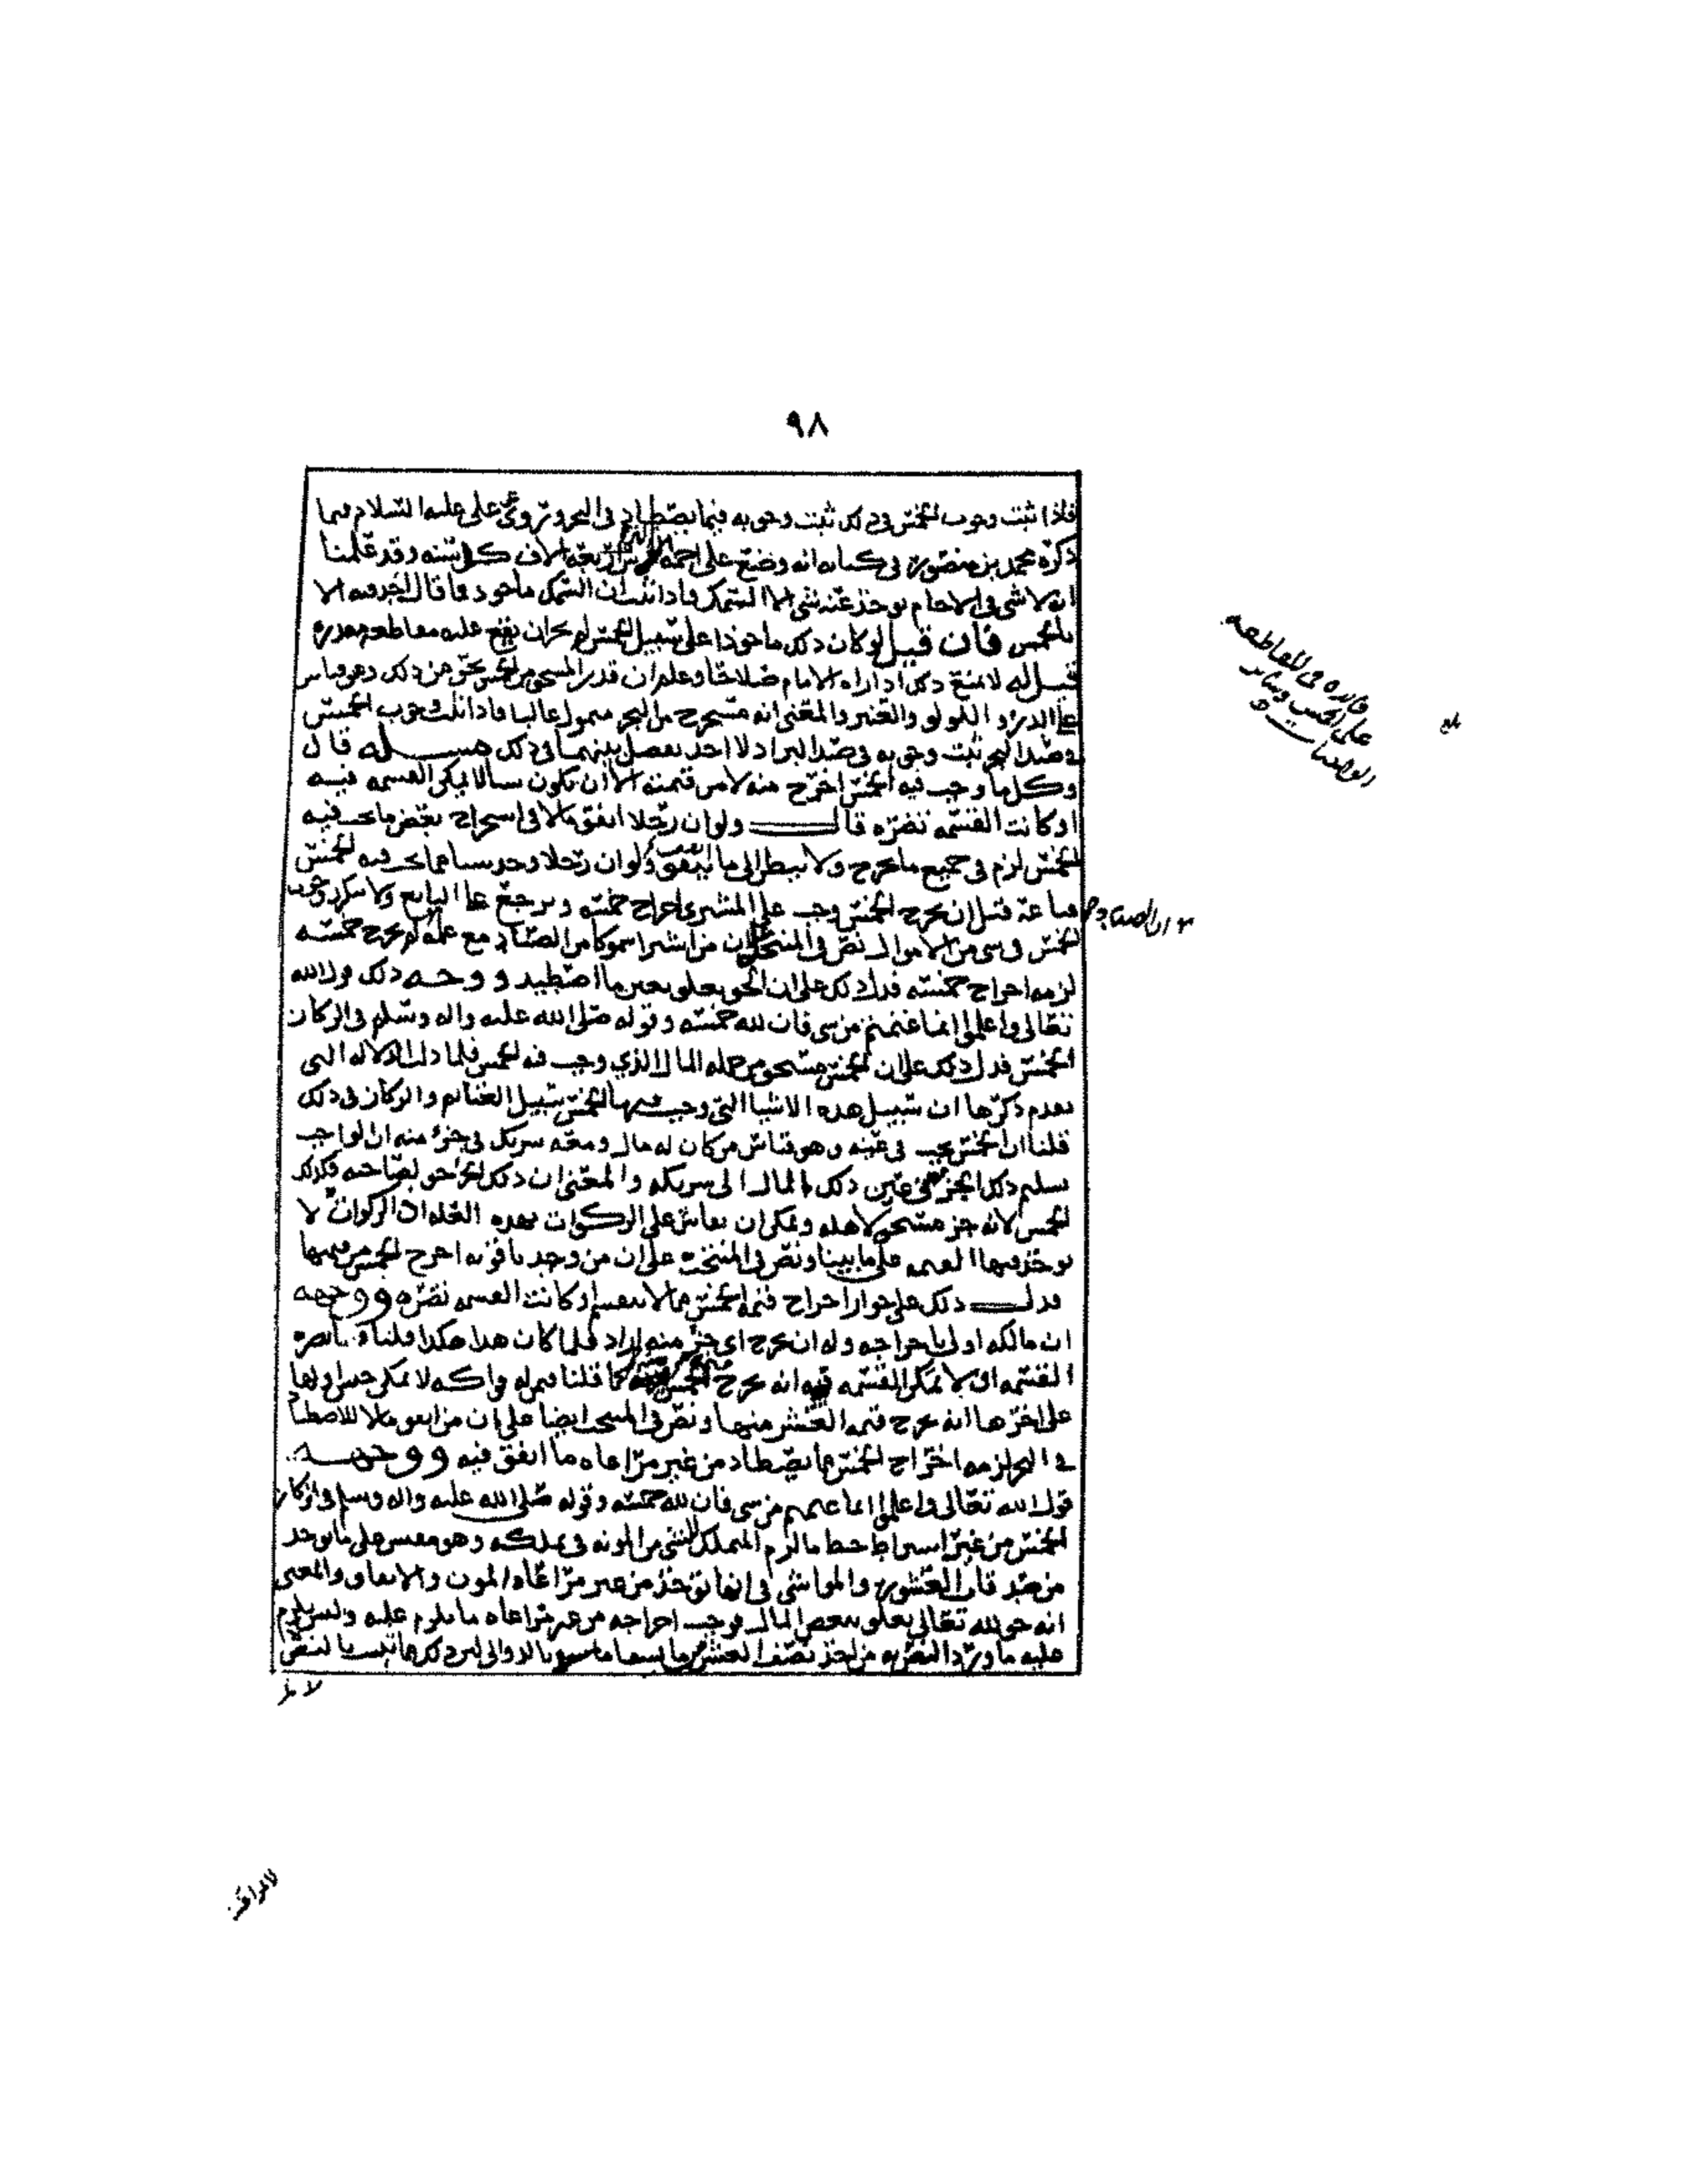 ٩٨
فاذا ثبت وجوب الخمس في ذلك ثبت وجوبه فيما يصطاد في البحر وروي عن علي عليه السلام فيما
ذكره محمد بن منصور في كتابه انه وضع على اجمة اربعة الاف كل سنة وقد علمنا
انه لا شي في الاجام يوخذ عنه شي الا السمك فاذا ثبت ان السمك ماخوذ فما قال احد فيه الا
بالخمس فان قيل لو كان ذلك ماخوذا على سبيل الخمس لم يجز ان يقع عليه مقاطعة
قيل له لا يمتنع ذلك اذا راه الامام صلاحا وعلم ان قدر المستحق من الخمس نحو من ذلك وهو قياس
على الدر و اللولو والعنبر والمعنى انه مستخرج من البحر متمول غالبا فاذا ثبت وجوب الخمس
في صيد البحر ثبت وجوبه في صيد البر اذ لا احد يفصل بينهما في ذلك مسله قال
وكل ما وجب فيه الخمس اخرج منه لا من قيمته الا ان يكون شيا لا يمكن القسمه فيه
او كانت القسمه تضره قال ولو ان رجلا انفق مالا في استخراج بعض ما يجب فيه
الخمس لزم في جميع ما يخرج ولا ينظر الى ما انفق ولو ان رجلا وجد شيا مما يجب فيه الخمس
فباعه قبل ان يخرج الخمس وجب على المشتري اخراج خمسه ويرجع على البايع ولا يتكرر وجوب
الخمس في شي من الاموال نص في المنتخب على ان من اشترا سموكا من الصياد مع علمه لم يخرج خمسه
ان الصياد
لزمه اخراج خمسه فدل ذلك على ان الحق يعلق بعين ما اصطيد ووجه ذلك قول الله
تعالى واعلموا انما غنمتم من شي فان لله خمسه وقوله صلى الله عليه واله وسلم في الركاز
الخمس فدل ذلك على ان الخمس مستحق من جملة المال الذي وجب فيه الخمس فلما دلت الدلاله التي
تقدم ذكرها ان سبيل هذه الاشيا التي وجب فيها الخمس سبيل الغنائم والركاز في ذلك
قلنا ان الخمس يجب في عينه وهو قياس من كان له مال ومعه شريك في جزء منه ان الواجب
تسليم ذلك الجزء من عين ذلك المال الى شريكه والمعنى ان ذلك الجزء حق لصاحبه فكذلك
الخمس لانه جز مستحق لاهله ويمكن ان يقاس على الزكوات بهذه العله اذ الزكوات لا
يوخذ فيها القيمه على ما بينا ونص في المنتخب على ان من وجد ياقوته اخرج الخمس من قيمتها
فدل ذلك على جواز اخراج قيمة الخمس مما لا ينقسم او كانت القسمه تضره ووجهه
ان مالكه اولى باخراجه وله ان يخرج اي جز منه اراد فلما كان هذا هكذا قلنا
القسمه او لا يمكن القسمه فيه انه يخرج الخمس كما قلنا في
على اخرها انه يخرج قيمه العشر منها ونص في المنتخب ايضا على ان من انفق مالا للاصطياد
في البحر لزمه اخراج الخمس مما يصطاد من غير مراعاه ما انفق فيه ووجهه
قول الله تعالى واعلموا انما غنمتم من شي فان لله خمسه وقوله صلى الله عليه واله وسلم في الركاز
الخمس من غير اشتراط حط ما لزم المتملك للشي من المونه في تملكه وهو مقيس على ما يوخذ
من صدقات العشور والمواشي في انها توخذ من غير مراعاه المون والانفاق والمعنى
انه حق لله تعالى يعلق ببعض المال فوجب اخراجه من غير مراعاه ما يلزم عليه وليس يلزم
عليه ما ورد النص به من اخذ نصف العشر مما يسقا بالدوالي لان ذلك مما ثبت بالنص
فائده في المقاطعه
على الخمس وسائر
الواجبات
بلغ